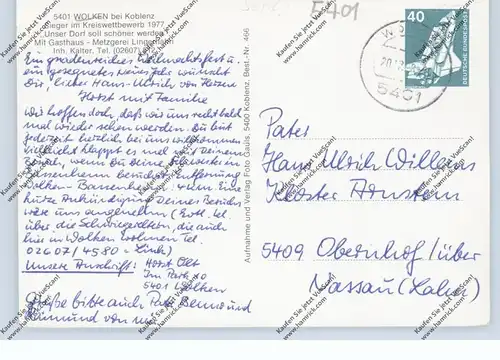 5401 WOLKEN bei Koblenz
Sieger im Kreiswettbewerb 1977
"Unser Dorf soll schöner werden"
Mit Gasthaus - Metzgerei
Inh. Kalter, Tel. (02607)
Ein gnadenreiches Weihnachtsfest u.
ein gesegnetes Neues Jahr wünscht
Dir, lieber Hans-Ulrich von Herzen
Horst mit Familie
Wir hoffen doch, daß wir uns recht bald
mal wieder sehen werden. Du bist
jederzeit herzlich bei uns willkommen
vielleicht klappt es mal mit Deinem
Besuch, wenn Du Deine
Bassenheim besuchst. Entfernung
Wolken - Bassenheim: 4 km. Eine
kurze Ankündigung Deines Besuchs
wäre uns angenehm (evtl. tel.
über die Schwiegereltern, die auch
hier in Wolken wohnen Tel.
02607/4580 -
Unsere Anschrift: Horst
Im Park
5401 Wolken
Grüße bitte auch Pater Benno und
von mir
Aufnahme und Verlag Foto Gauls, 5400 Koblenz, Best.-Nr. 466
5401
40
DEUTSCHE BUNDESPOST
5401
Pater
Hans Ulrich Willms
Kloster Arnstein
5409 Obernhof / über
Nassau (Lahn)
Kaufen Sie jetzt VueScan!
www.hamrick.com